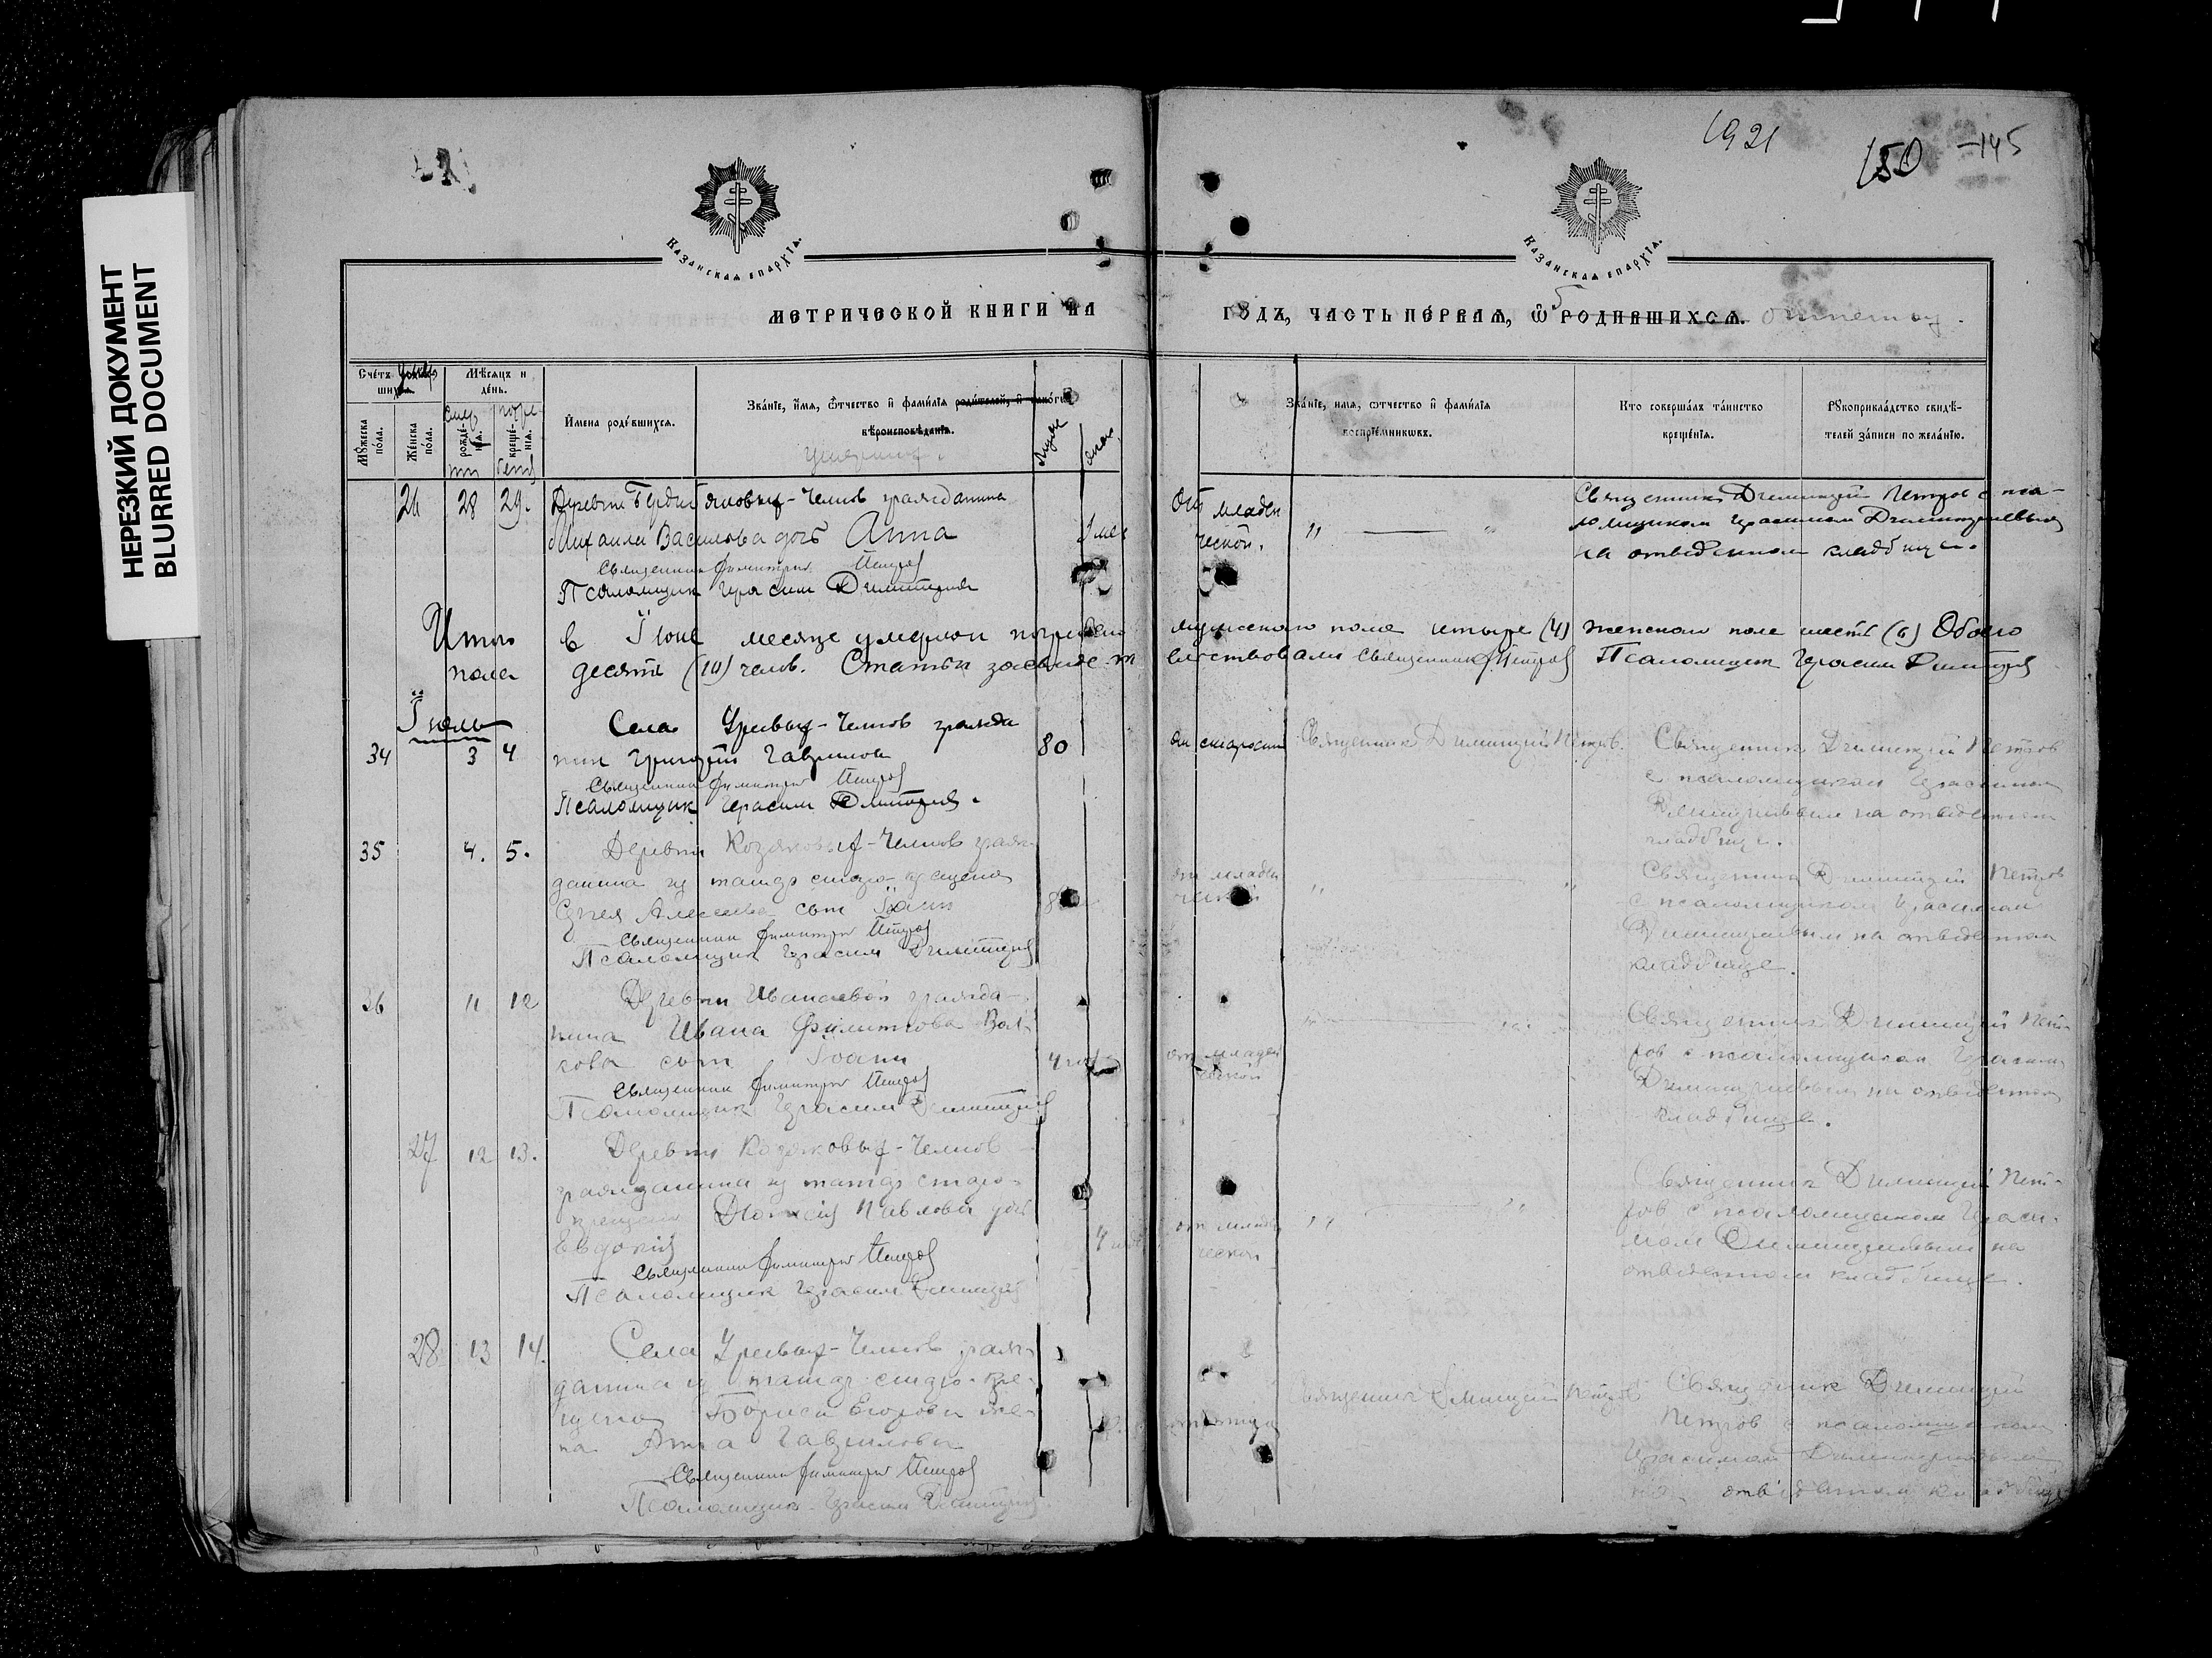 НЕРЕЗКИЙ ДОКУМЕНТ
BLURRED DOCUMENT
1921
150 -145
Казанская епархїѧ.
Казанская епархїѧ.
МЕТРИЧЕСКОЙ КНИГИ НА
ГОДЪ, ЧАСТЬ ПЕРВАЯ, Ѿ РОДИВШИХСЯ.
Счетъ
Мѣсяцъ и день.
Мужеска пола.
Женска пола.
рожденія.
крещенія.
Имена родившихся.
Званіе, имя, отчество и фамилія родителей, и какого
вѣроисповѣданія.
Званіе, имя, отчество и фамилія
воспріемниковъ.
Кто совершалъ таинство
крещенія.
Рукоприкладство свидѣ-
телей записи по желанію.
26 28 29. Деревни -Челнов гражданина
Михаила Васильева дочь Анна
Священник Димитрий Петров
Псаломщик Герасим Димитриев
От младен
ческой.
Священник Димитрий Петров с пса-
ломщиком Герасимом Димитриевым
на отведенном кладбище.
Итого в Іюне месяце умерло погребено мужеского пола четыре (4) женского пола шесть (6) Обоего
пола десять (10) челов. Статьи засвидетельствовали Священник Д. Петров Псаломщик Герасим Димитриев
Іюль
34 3 4 Села -Челнов гражда
нин Григорий Гаврилов 80
Священник Димитрий Петров
Псаломщик Герасим Димитриев.
от старости
Священник Димитрий Петров.
Священник Димитрий Петров
с псаломщиком Герасимом
Димитриевым на отведенном
кладбище.
35 4. 5. Деревни Козяковых-Челнов граж-
данина из татар старо-крещена
Сергея Алексеева сын Іоанн
Священник Димитрий Петров
Псаломщик Герасим Димитриев
от младен
ческой
Священник Димитрий Петров
с псаломщиком Герасимом
Димитриевым на отведенном
кладбище.
36 11 12 Деревни Иванаевой гражда-
нина Ивана Филиппова
сын Іоанн 4
Священник Димитрий Петров
Псаломщик Герасим Димитриев
от младен
ческой
Священник Димитрий Пет-
ров с псаломщиком Герасимом
Димитриевым на отведенном
кладбище.
27 12 13. Деревни Козяковых-Челнов
гражданина из татар старо-
крещена Павлова дочь
Евдокия 4
Священник Димитрий Петров
Псаломщик Герасим Димитриев
от младен
ческой
Священник Димитрий Пет-
ров с псаломщиком Гераси-
мом Димитриевым на
отведенном кладбище.
28 13 14. Села -Челнов граж-
данина из татар старо-кре-
щена Бориса Егорова же-
на Анна Гаврилова
Священник Димитрий Петров
Псаломщик Герасим Димитриев
Священник Димитрий Петров
Священник Димитрий
Петров с псаломщиком
Герасимом Димитриевым
на отведенном кладбище